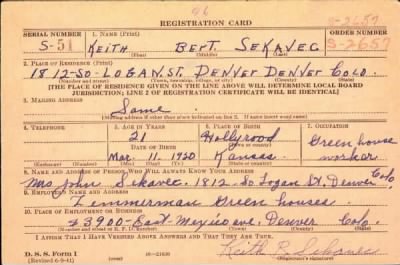 96
REGISTRATION CARD
SERIAL NUMBER 1. NAME (Print) ORDER NUMBER
S-51 KEITH BERT. SEKAVEC S-2657
(First) (Middle) (Last)
2. PLACE OF RESIDENCE (Print)
1812-SO-LOGAN.ST. DENVER DENVER COLO.
(Number and street) (Town, township, village, or city) (County) (State)
[THE PLACE OF RESIDENCE GIVEN ON THE LINE ABOVE WILL DETERMINE LOCAL BOARD
JURISDICTION; LINE 2 OF REGISTRATION CERTIFICATE WILL BE IDENTICAL]
3. MAILING ADDRESS
Same
[Mailing address if other than place indicated on line 2. If same insert word same]
4. TELEPHONE 5. AGE IN YEARS 6. PLACE OF BIRTH 7. OCCUPATION
21 Hollyrood Green house
DATE OF BIRTH
Mar. 11. 1920 Kansas. worker.
(Exchange) (Number) (Mo.) (Day) (Yr.) (State or country)
8. NAME AND ADDRESS OF PERSON WHO WILL ALWAYS KNOW YOUR ADDRESS
Mrs John Sekavec. 1812-So Logan St, Denver Colo
9. EMPLOYER'S NAME AND ADDRESS
Zimmerman Green houses.
10. PLACE OF EMPLOYMENT OR BUSINESS
3900-East-Mexico ave. Denver Colo
(Number and street or R. F. D. number) (Town) (County) (State)
I AFFIRM THAT I HAVE VERIFIED ABOVE ANSWERS AND THAT THEY ARE TRUE.
D. S. S. Form 1 Keith B. Sekavec
(Revised 6-9-41) 16-21630